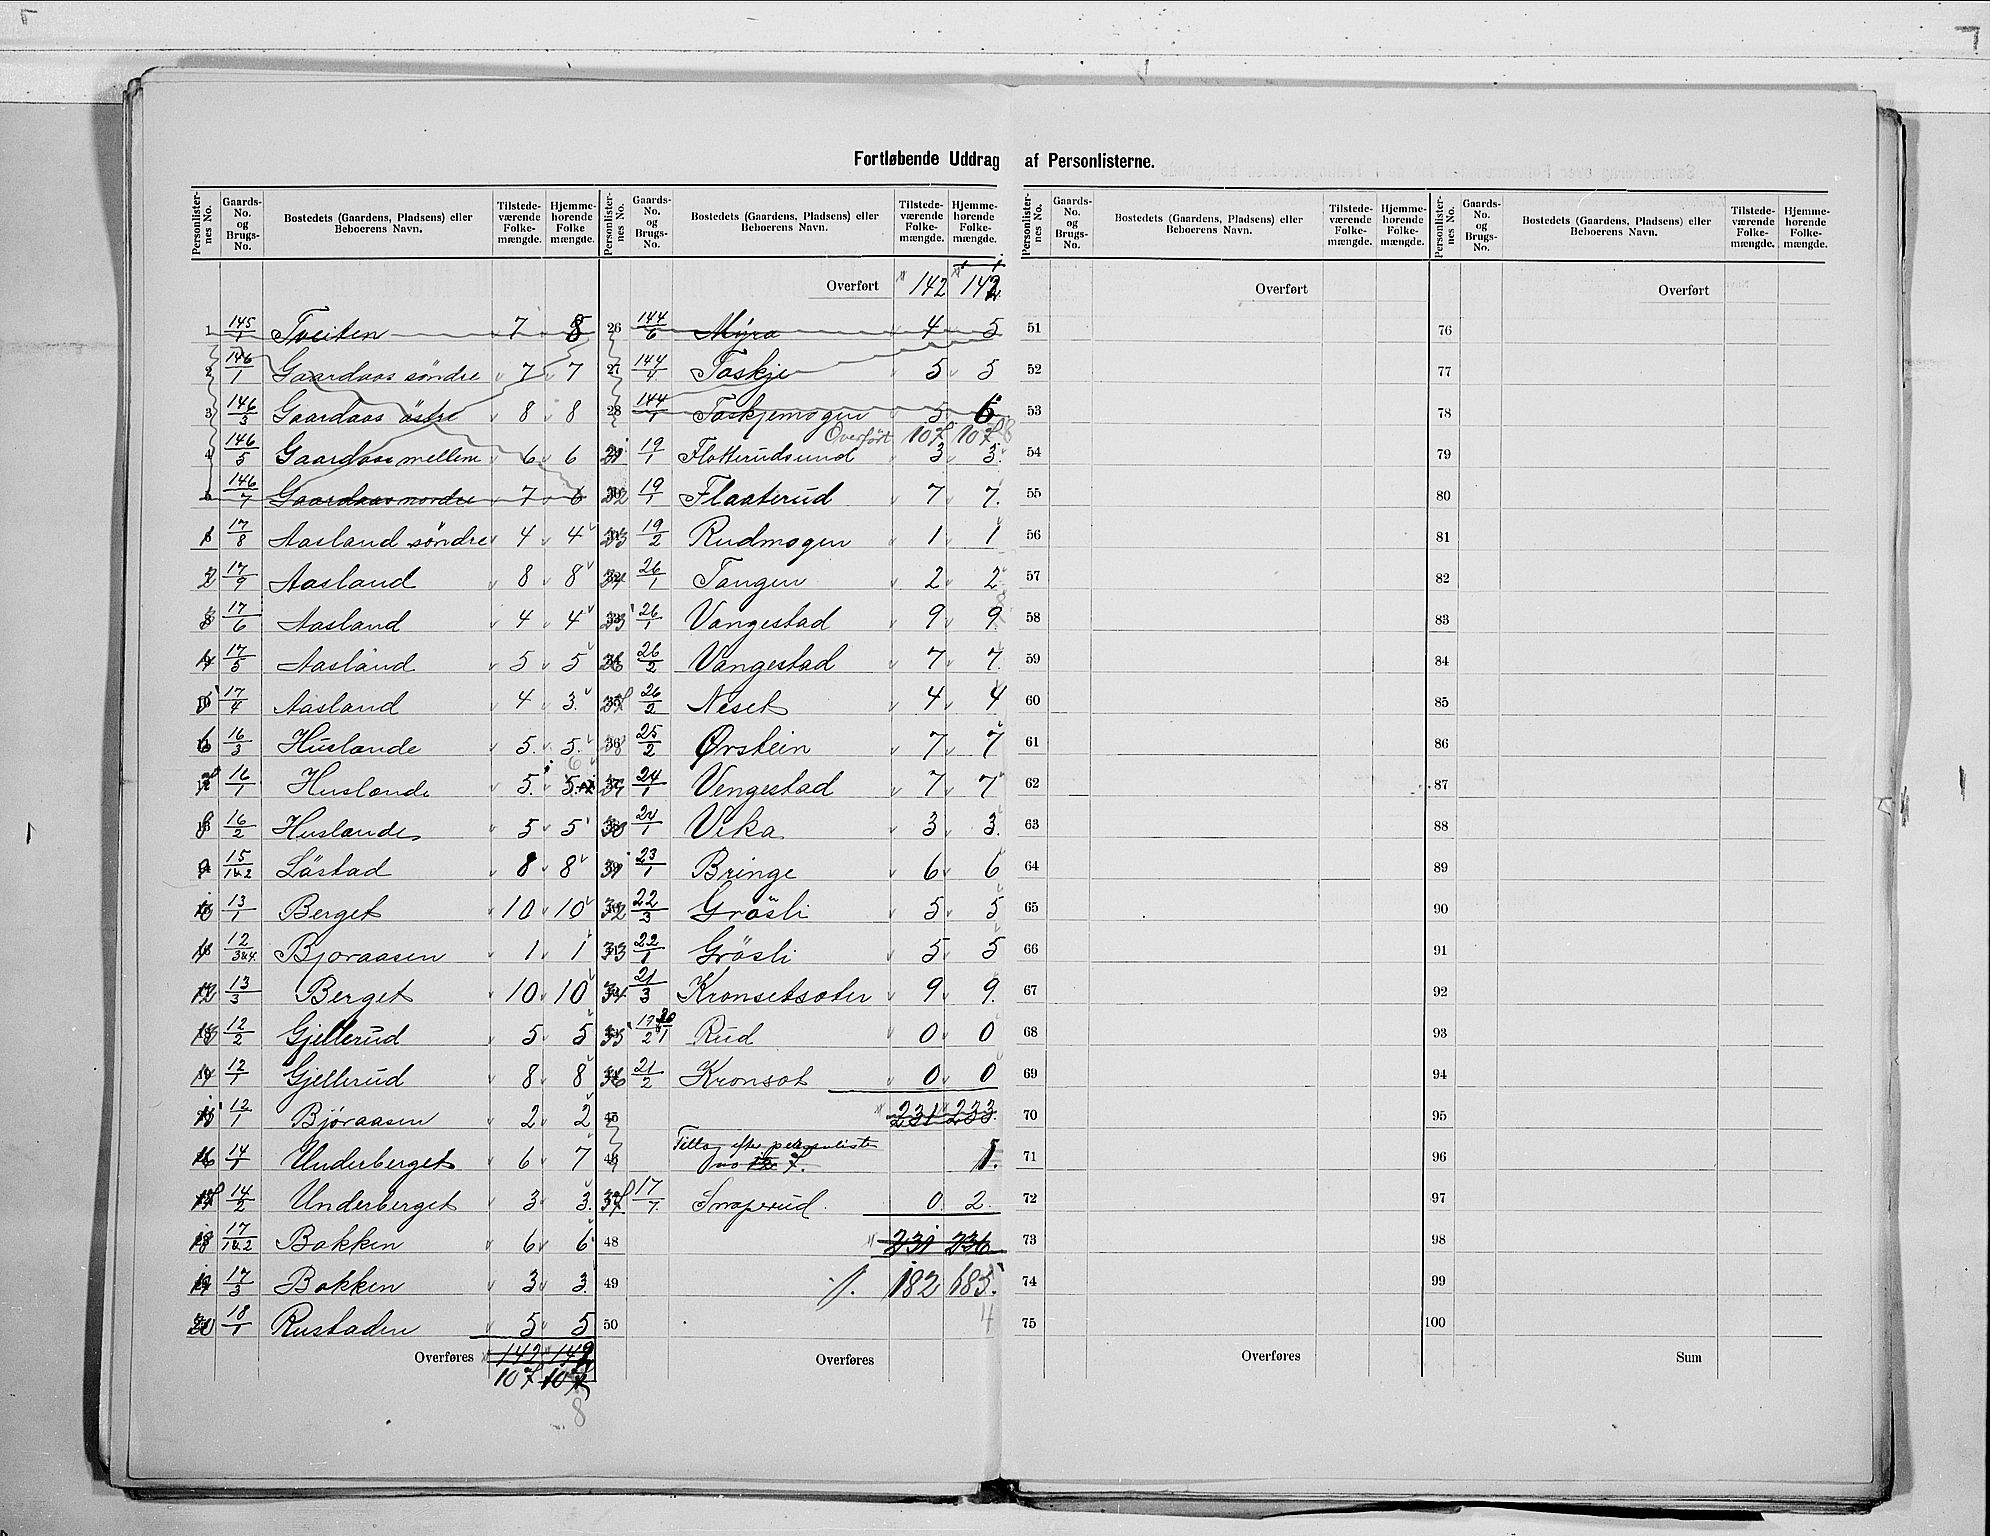 Fortløbende Uddrag af Personlisterne.
Personlister-nes No. | Gaards-No. og Brugs-No. | Bostedets (Gaardens, Pladsens) eller Beboerens Navn. | Tilstede-værende Folke-mængde. | Hjemme-hørende Folke mængde.
1 145/1 Tveiten 7 8
2 146/1 Gaardaas söndre 7 7
3 146/3 Gaardaas östre 8 8
4 146/5 Gaardaas mellem 6 6
5 146/7 Gaardaas nordre 7 6
1 17/8 Aasland söndre 4 4
2 17/9 Aasland 8 8
3 17/6 Aasland 4 4
4 17/5 Aasland 5 5
5 17/4 Aasland 4 3
6 16/3 Huslande 5 5
7 16/1 Huslande 5 5 6
8 16/2 Huslande 5 5
9 15/1&2 Låstad 8 8
10 13/1 Berget 10 10
11 12/3&4 Bjoraasen 1 1
12 13/3 Berget 10 10
13 12/2 Gjellerud 5 5
14 12/1 Gjellerud 8 8
15 12/1 Björaasen 2 2
16 14/1 Underberget 6 7
17 14/2 Underberget 3 3
18 17/1&2 Bakken 6 6
19 17/3 Bakken 3 3
20 18/1 Rustaden 5 5
Overføres 142 142
107 107
8
Personlister-nes No. | Gaards-No. og Brugs-No. | Bostedets (Gaardens, Pladsens) eller Beboerens Navn. | Tilstede-værende Folke-mængde. | Hjemme-hørende Folke-mængde.
Overført 142 142
26 144/6 Myra 4 5
27 144/4 Taskje 5 5
28 144/1 Taskjemogen 5 6
Overført 107 107 8
21 19/1 Flatterudsund 3 3
22 19/1 Flaaterud 7 7
23 19/2 Rudmogen 1 1
24 26/1 Tangen 2 2
25 26/1 Vangestad 9 9
26 26/2 Vangestad 7 7
27 26/2 Neset 4 4
28 25/2 Ørstein 7 7
29 24/1 Vengestad 7 7
30 24/1 Vika 3 3
31 23/1 Bringe 6 6
32 22/3 Gråsli 5 5
33 22/1 Gråsli 5 5
34 21/3 Kronsetsæter 9 9
35 19/2 20/1 Rud 0 0
36 21/2 Kronsæt 0 0
45 231 233
46 Tillæg efter personliste
no 12 7. 1.
37 17/7 Snaperud 0 2
48 231 236
49 182 185
50 4
Overføres
Personlister-nes No. | Gaards-No. og Brugs-No. | Bostedets (Gaardens, Pladsens) eller Beboerens Navn. | Tilstede-værende Folke-mængde. | Hjemme-hørende Folke-mængde.
Overført
51
52
53
54
55
56
57
58
59
60
61
62
63
64
65
66
67
68
69
70
71
72
73
74
75
Overføres
Personlister-nes No. | Gaards-No. og Brugs-No. | Bostedets (Gaardens, Pladsens) eller Beboerens Navn. | Tilstede-værende Folke-mængde. | Hjemme-hørende Folke-mængde.
Overført
76
77
78
79
80
81
82
83
84
85
86
87
88
89
90
91
92
93
94
95
96
97
98
99
100
Sum